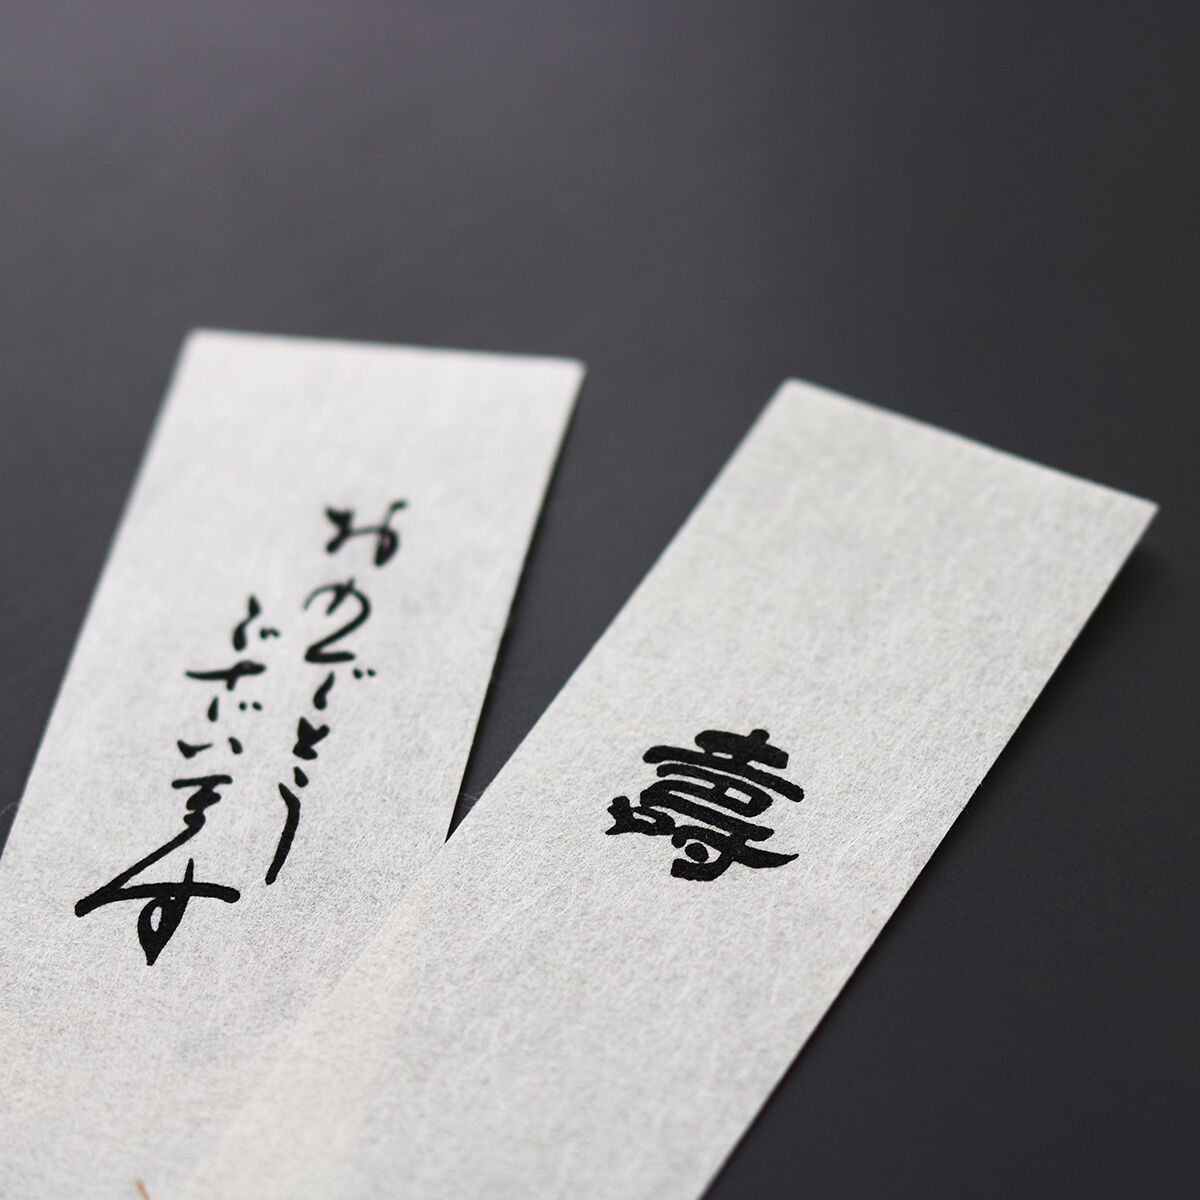 おめでとう
ございます
壽